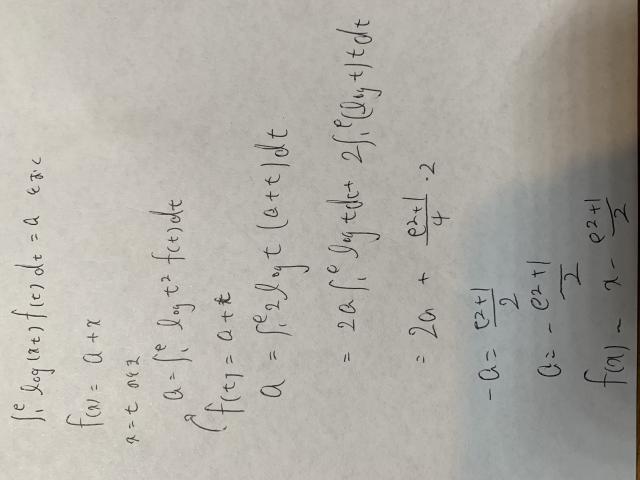 ∫₁ᵉ log(xt) f(t) dt = a とおく
f(x) = a + x
x = t のとき
a = ∫₁ᵉ log t² f(t) dt
f(t) = a + t
a = ∫₁ᵉ 2 log t (a + t) dt
= 2a ∫₁ᵉ log t dt + 2 ∫₁ᵉ (log t) t dt
= 2a + e²+1/4 · 2
-a = e²+1/2
a = - e²+1/2
f(x) = x - e²+1/2